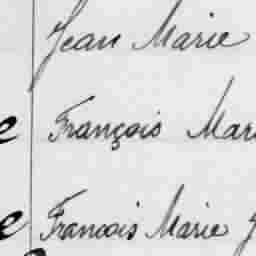 Jean Marie
e François Mari
e Francois Marie J